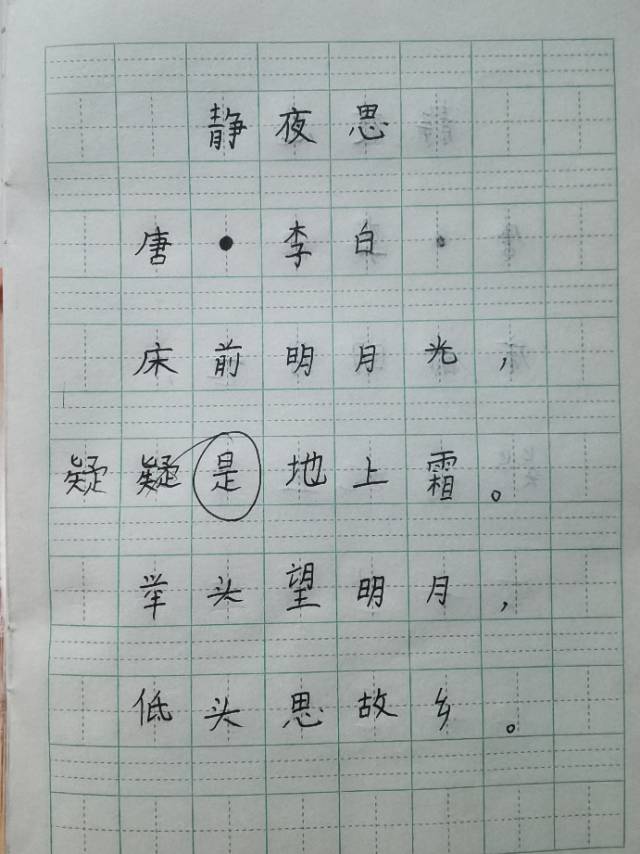 静夜思
唐•李白
床前明月光，
疑疑是地上霜。
举头望明月，
低头思故乡。